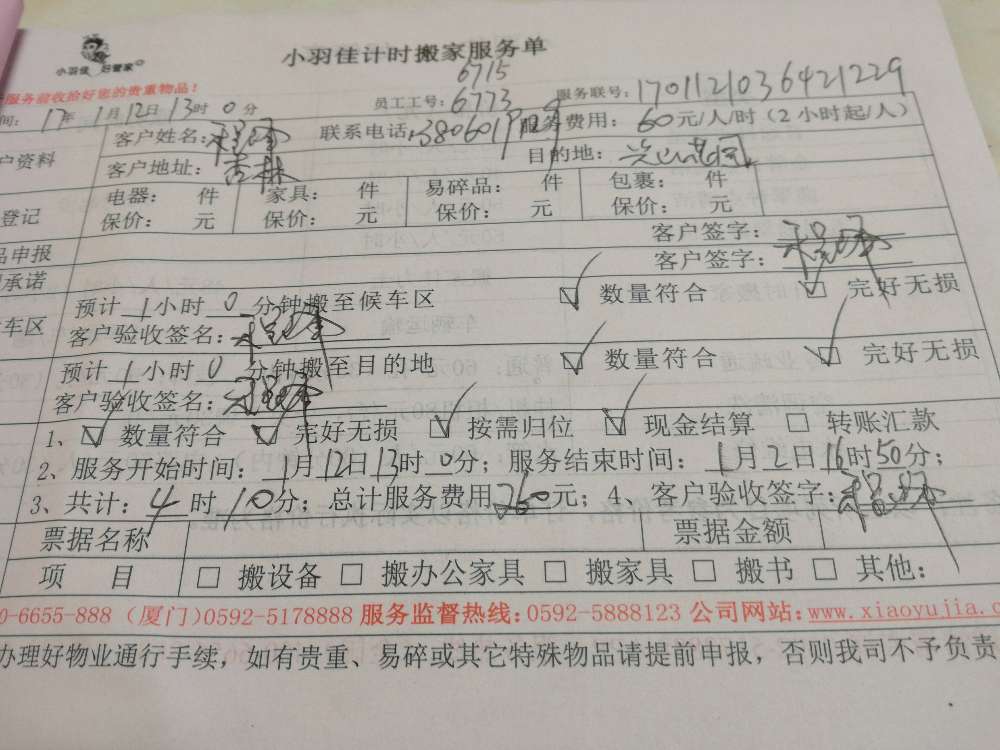 小羽佳 好管家
小羽佳计时搬家服务单
服务前收拾好您的贵重物品!
6715
员工工号: 6773
服务联号: 1701121036421229
间: 17年 1月12日13时0分
户资料
客户姓名:
联系电话:
服务费用: 60元/人/时(2小时起/人)
客户地址: 杏林
目的地:
登记
电器: 件 家具: 件 易碎品: 件 包裹: 件
保价: 元 保价: 元 保价: 元 保价: 元
品申报
客户签字:
承诺
客户签字:
车区
预计1小时0分钟搬至候车区 ☑ 数量符合 ☑ 完好无损
客户验收签名:
预计1小时0分钟搬至目的地 ☑ 数量符合 ☑ 完好无损
客户验收签名:
1、☑ 数量符合 ☑ 完好无损 ☑ 按需归位 ☑ 现金结算 □ 转账汇款
2、服务开始时间: 1月12日13时0分; 服务结束时间: 1月2日16时50分;
3、共计: 4时10分; 总计服务费用260元; 4、客户验收签字:
票据名称 票据金额
项 目 □ 搬设备 □ 搬办公家具 □ 搬家具 □ 搬书 □ 其他:
0-6655-888 (厦门)0592-5178888 服务监督热线:0592-5888123 公司网站:www.xiaoyujia.c
办理好物业通行手续,如有贵重、易碎或其它特殊物品请提前申报,否则我司不予负责